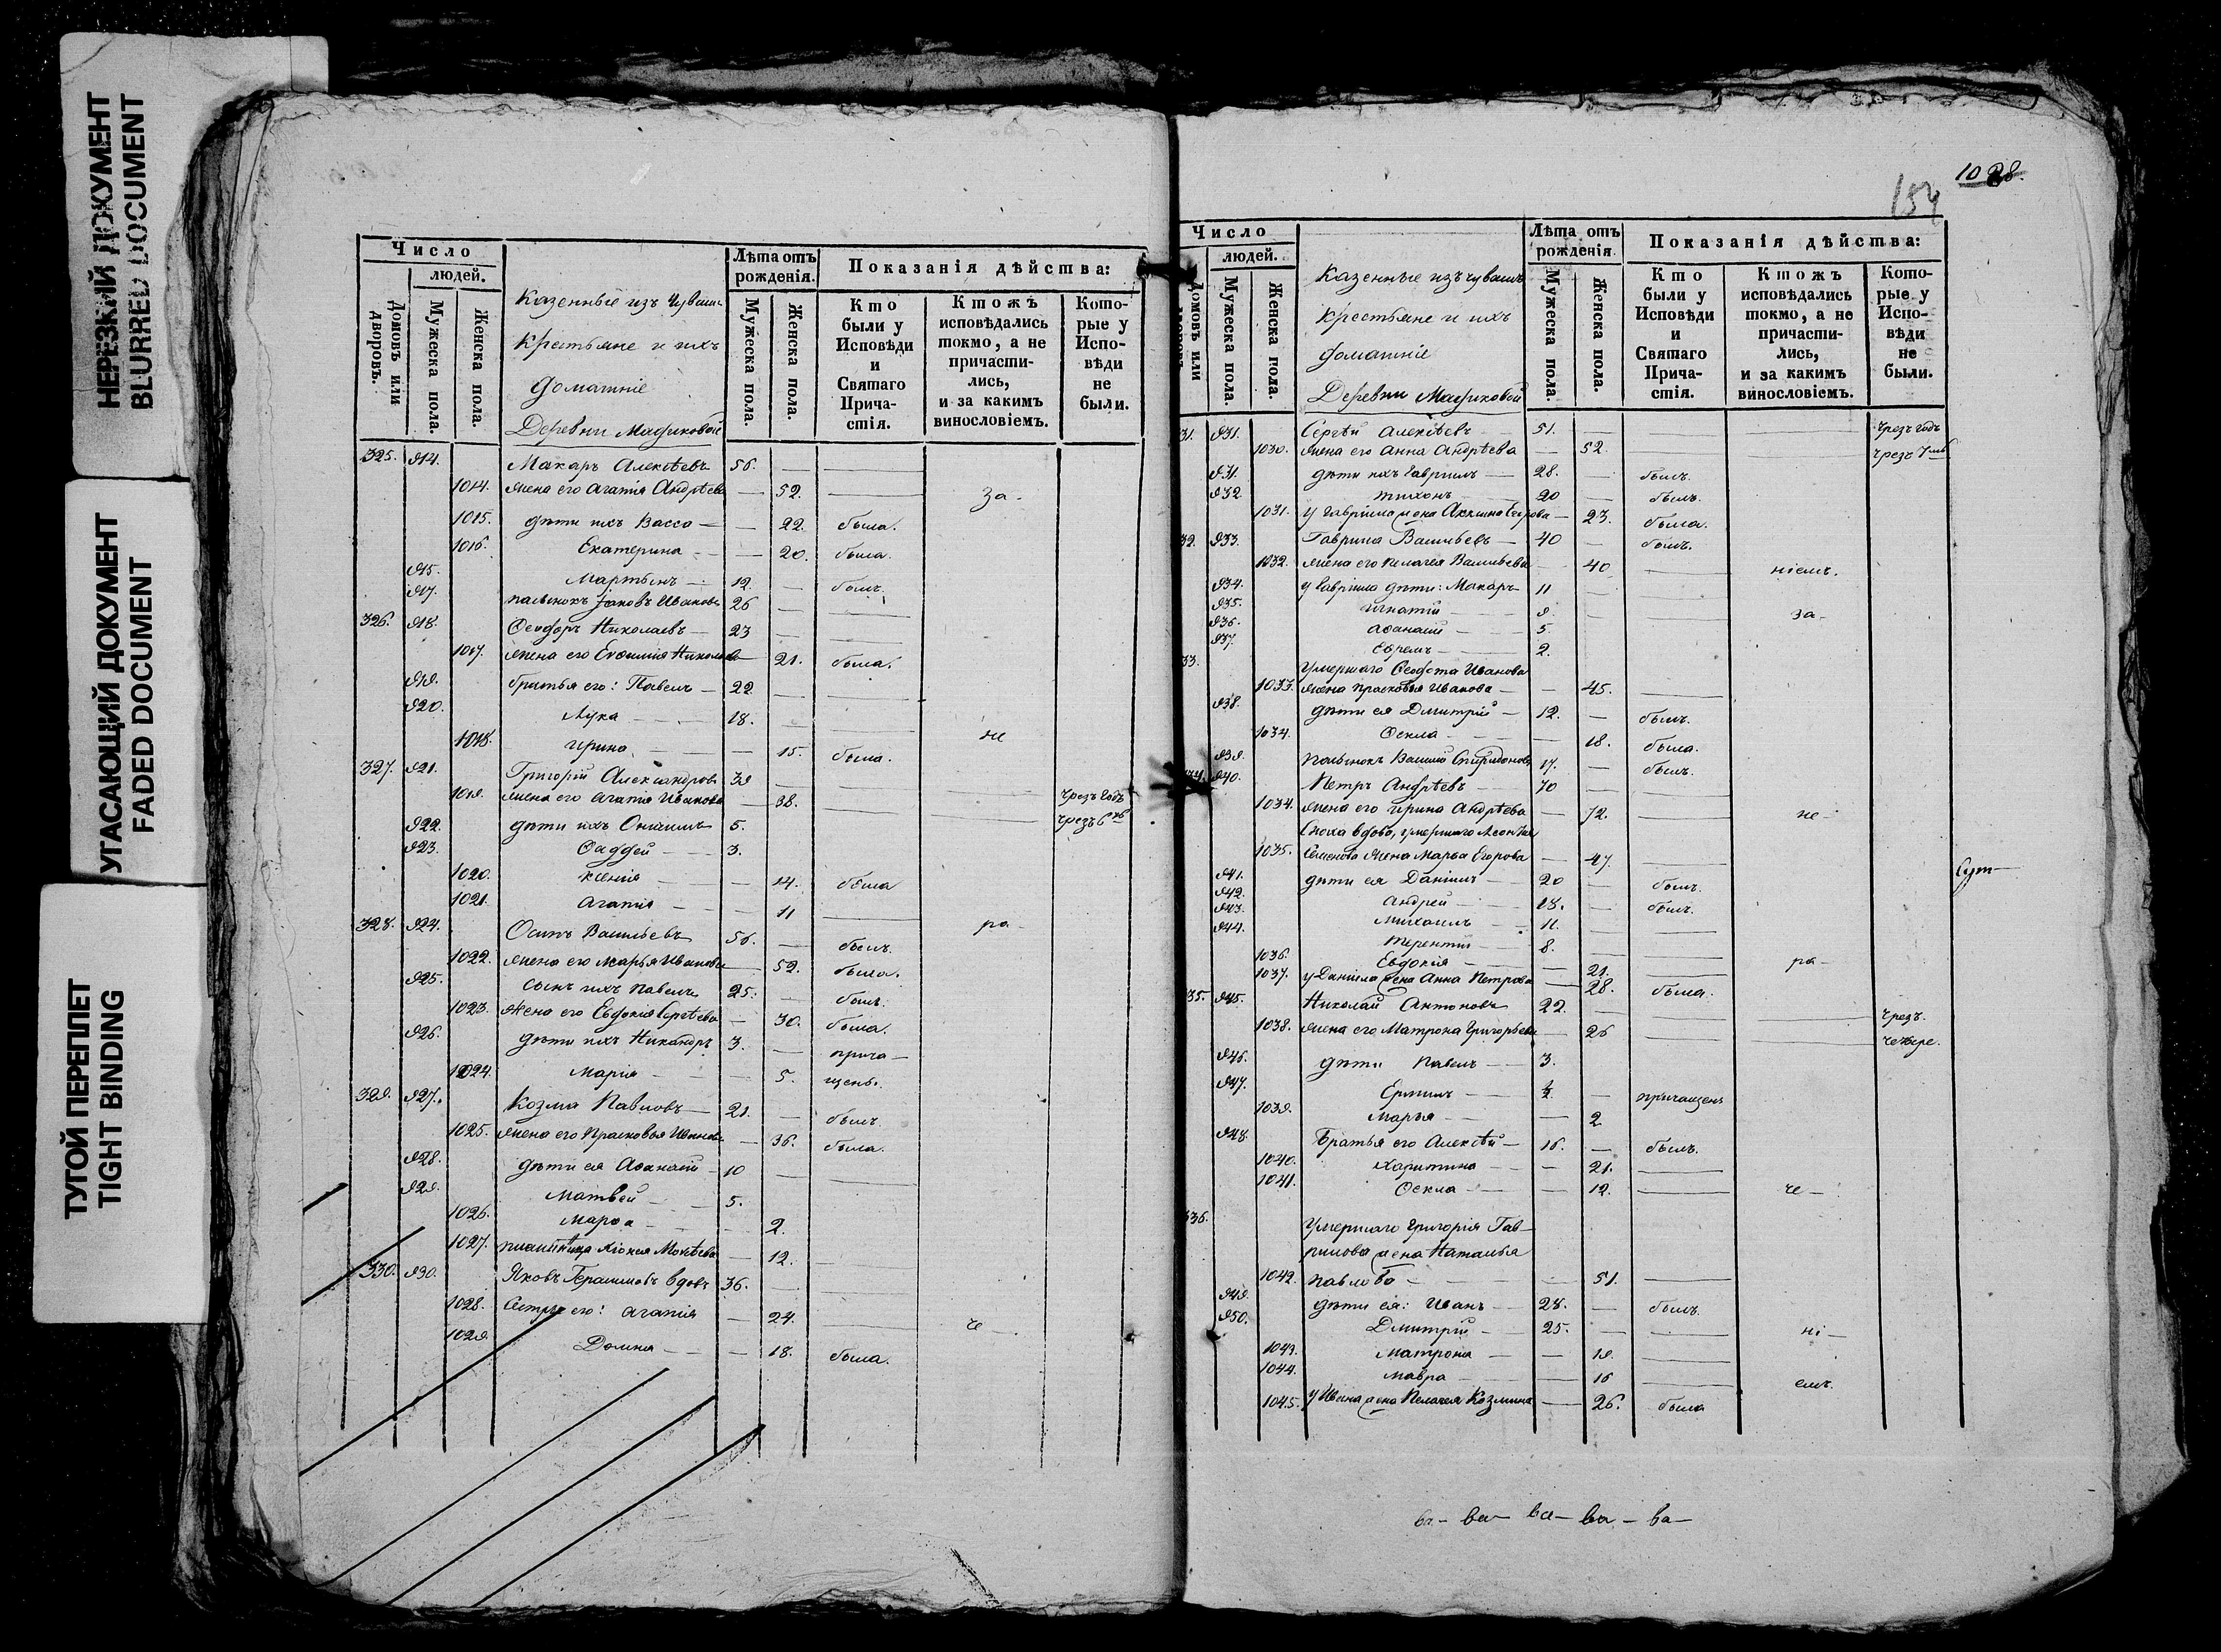 НЕРЕЗКИЙ ДОКУМЕНТ
BLURRED DOCUMENT
УГАСАЮЩИЙ ДОКУМЕНТ
FADED DOCUMENT
ТУГОЙ ПЕРЕПЛЕТ
TIGHT BINDING
Число
людей.
Домовъ или дворовъ.
Мужеска пола.
Женска пола.
Казенные изъ Чуваш
Крестьяне и ихъ
домашніе
Деревни
Лѣта отъ рожденія.
Мужеска пола.
Женска пола.
Показанія дѣйства:
Кто были у Исповѣди и Святаго Причастія.
Ктожъ исповѣдались токмо, а не причастились, и за какимъ винословіемъ.
Которые у Исповѣди не были.
325. 914. Макаръ Алексѣевъ 56. —
1014. жена его Агапія Андрѣева — 52. за-
1015. дѣти ихъ Васса — 22. была.
1016. Екатерина — 20. была.
915. Мартынъ — 12. — былъ.
917. Іаковъ Ивановъ 26 —
326. 918. Ѳеодоръ Николаевъ — 23 —
1017. жена его Евѳимія — 21. была.
919. братья его: Павелъ — 22 —
920. Лука — 18. — не
1018. Ирина — 15. была.
327. 921. Григорій Александровъ 39 —
1019. жена его Агапія Иванова — 38. чрезъ годъ
922. дѣти ихъ Онисимъ 5. чрезъ 6
923. Ѳаддей — 3.
1020. Ксенія — 14. была
1021. Агапія — 11
328. 924. Осипъ Васильевъ 56. — былъ. ра-
1022. жена его Марья Иванова 52. была.
925. сынъ ихъ Павелъ 25. — былъ.
1023. Жена его Евдокія Сергѣева — 30. была.
926. дѣти ихъ Никандръ 3. — прича-
1024. Марія — 5. щены.
329. 927. Козма Павловъ — 21. — былъ.
1025. жена его Прасковья — 36. была.
928. дѣти ея Аѳанасій 10 —
929. Матвей — 5.
1026. Марѳа — 2.
1027. — 12.
330. 930. Яковъ Герасимовъ вдовъ 36. —
1028. Сестры его: Агапія — 24. че-
1029. Домна — 18. была.
1028.
154
Число
людей.
Домовъ или дворовъ.
Мужеска пола.
Женска пола.
Казенные изъ чувашъ
Крестьяне и ихъ
домашніе
Деревни
Лѣта отъ рожденія.
Мужеска пола.
Женска пола.
Показанія дѣйства:
Кто были у Исповѣди и Святаго Причастія.
Ктожъ исповѣдались токмо, а не причастились, и за какимъ винословіемъ.
Которые у Исповѣди не были.
31. 931. Сергѣй Алексѣевъ 51. — чрезъ годъ
1030. жена его Анна Андрѣева — 52. чрезъ 7
931. дѣти ихъ Гаврилъ — 28. — былъ.
932. Тихонъ 20 — былъ.
1031. у Гавріила жена Акилина Егорова — 23. была.
32. 933. Гаврила Васильевъ — 40 — былъ.
1032. жена его Пелагея Васильева — 40 ніемъ.
934. у Гавріила дѣти: Макаръ 11 —
935. Игнатій 9. — за-
936. Аѳанасій — 5.
937. Ефремъ — 2.
33. Умершаго Ѳеодота Иванова
1033. жена Прасковья Иванова — 45.
938. дѣти ея Дмитрій — 12. — былъ.
1034. Ѳекла — 18. была.
939. Василій Спиридоновъ 17. — былъ.
34. 940. Петръ Андрѣевъ — 70 —
1034. жена его Ирина Андрѣева — 72. не-
Сноха вдова, умершаго Леонтья
1035. Семенова жена Марѳа Егорова — 47. Сут-
941. дѣти ея Даніилъ — 20 — былъ.
942. Андрей — 18. — былъ.
943. Михаилъ — 11. —
944. Терентій — 8. —
1036. Евдокія — 21. ра-
1037. у Даніила жена Анна Петрова — 28. была.
35. 945. Николай Антоновъ 22. — чрезъ.
1038. жена его Матрона Григорьева — 26 четыре.
946. дѣти Павелъ — 3.
947. Ермилъ — ½ — причащены
1039. Марья — 2
948. Братья его Алексѣй — 16. — былъ.
1040. Харитина — 21.
1041. Ѳекла — 12. че-
336. Умершаго Григорія Гав-
рилова жена Наталья
1042. Павлова — 51.
949. дѣти ея: Иванъ — 28. — былъ.
950. Дмитрій — 25. — ні-
1043. Матрона — 19.
1044. Мавра — 16 емъ.
1045. у Ивана жена Пелагея Козмина — 26. была
ва- ва- ва- ва- ва-